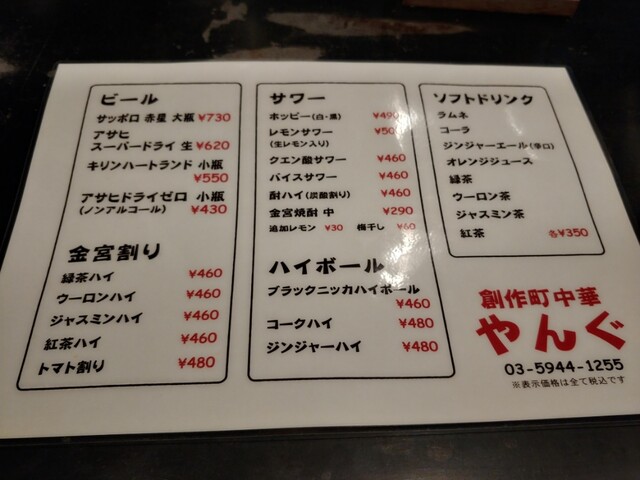 ビール
サッポロ 赤星 大瓶 ¥730
アサヒ
スーパードライ 生 ¥620
キリンハートランド 小瓶
¥550
アサヒドライゼロ 小瓶
(ノンアルコール) ¥430
金宮割り
緑茶ハイ ¥460
ウーロンハイ ¥460
ジャスミンハイ ¥460
紅茶ハイ ¥460
トマト割り ¥480
サワー
ホッピー(白・黒) ¥490
レモンサワー ¥500
(生レモン入り)
クエン酸サワー ¥460
バイスサワー ¥460
酎ハイ(炭酸割り) ¥460
金宮焼酎 中 ¥290
追加レモン ¥30 梅干し ¥60
ハイボール
ブラックニッカハイボール
¥460
コークハイ ¥480
ジンジャーハイ ¥480
ソフトドリンク
ラムネ
コーラ
ジンジャーエール(辛口)
オレンジジュース
緑茶
ウーロン茶
ジャスミン茶
紅茶 各¥350
創作町中華
やんぐ
03-5944-1255
※表示価格は全て税込です